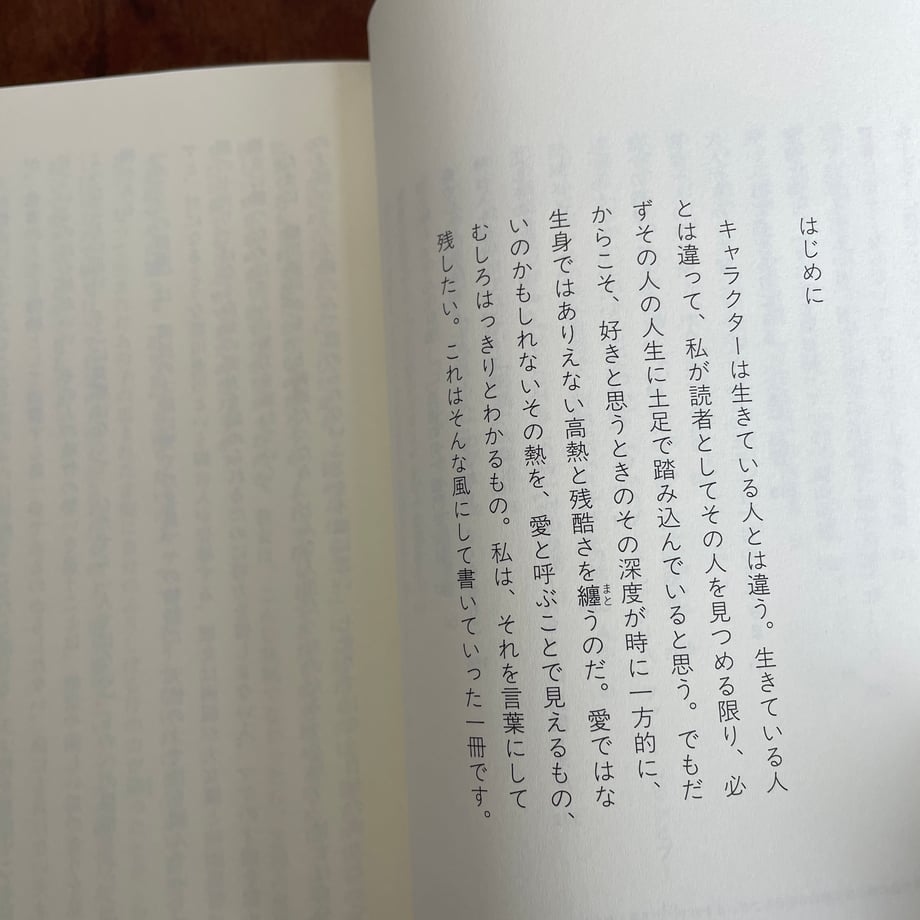 はじめに
キャラクターは生きている人とは違う。生きている人
とは違って、私が読者としてその人を見つめる限り、必
ずその人の人生に土足で踏み込んでいると思う。でもだ
からこそ、好きと思うときのその深度が時に一方的に、
生身ではありえない高熱と残酷さを纏うのだ。愛ではな
まと
いのかもしれないその熱を、愛と呼ぶことで見えるもの、
むしろはっきりとわかるもの。私は、それを言葉にして
残したい。これはそんな風にして書いていった一冊です。